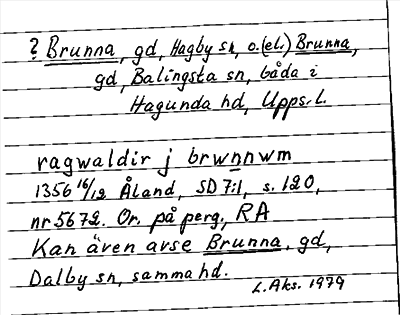 ? Brunna, gd, Hagby sn, o. (el.) Brunna,
gd, Balingsta sn, båda i
Hagunda hd, Upps. l.
ragwaldir j brwnnwm
1356 16/12 Åland, SD 7:1, s. 120,
nr 5672. Or. på perg, RA
Kan även avse Brunna, gd,
Dalby sn, samma hd.
L. Aks. 1979